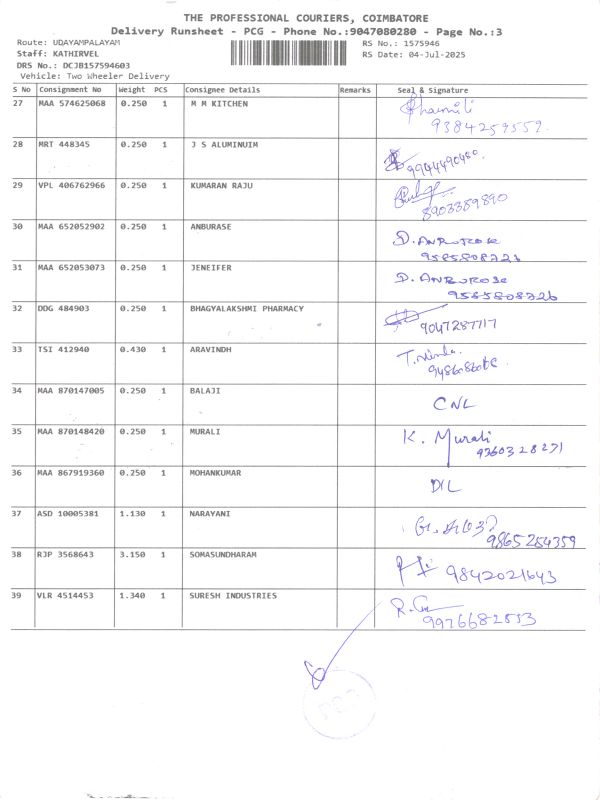 THE PROFESSIONAL COURIERS, COIMBATORE
Delivery Runsheet - PCG - Phone No.:9047080280 - Page No.:3
Route: UDAYAMPALAYAM RS No.: 1575946
Staff: KATHIRVEL RS Date: 04-Jul-2025
DRS No.: DCJB157594603
Vehicle: Two Wheeler Delivery
S No Consignment No Weight PCS Consignee Details Remarks Seal & Signature
27 MAA 574625068 0.250 1 M M KITCHEN
9384259559.
28 MRT 448345 0.250 1 J S ALUMINUIM
9944490480.
29 VPL 406762966 0.250 1 KUMARAN RAJU
8903389890
30 MAA 652052902 0.250 1 ANBURASE
9585808726
31 MAA 652053073 0.250 1 JENEIFER
9585808726
32 DDG 484903 0.250 1 BHAGYALAKSHMI PHARMACY
9047287717
33 TSI 412940 0.430 1 ARAVINDH
34 MAA 870147005 0.250 1 BALAJI CNL
35 MAA 870148420 0.250 1 MURALI K. Murali
9360328271
36 MAA 867919360 0.250 1 MOHANKUMAR DIL
37 ASD 10005381 1.130 1 NARAYANI
9865254359
38 RJP 3568643 3.150 1 SOMASUNDHARAM 9842021643
39 VLR 4514453 1.340 1 SURESH INDUSTRIES
9976682553